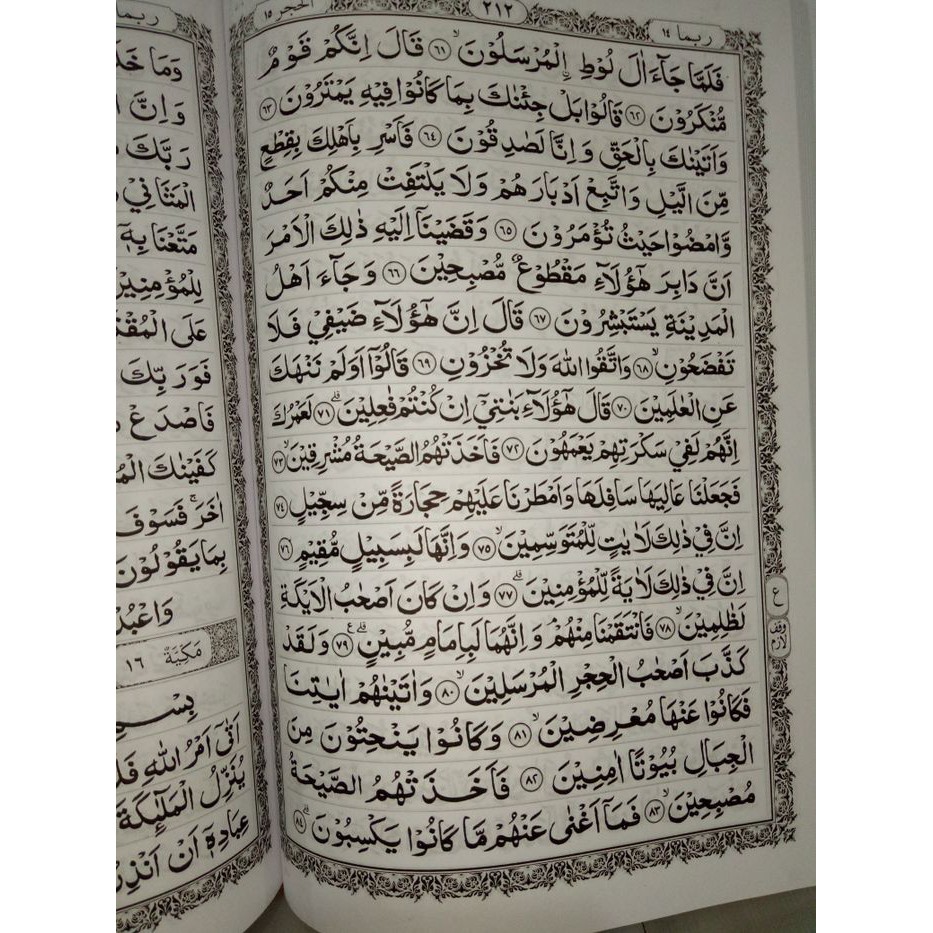 ربما ١٤
٢١٢
الحجر ١٥
فَلَمَّا جَآءَ اٰلَ لُوْطِ ۨالْمُرْسَلُوْنَ ۙ ٦١ قَالَ اِنَّكُمْ قَوْمٌ
مُّنْكَرُوْنَ ٦٢ قَالُوْا بَلْ جِئْنٰكَ بِمَا كَانُوْا فِيْهِ يَمْتَرُوْنَ ٦٣
وَاَتَيْنٰكَ بِالْحَقِّ وَاِنَّا لَصٰدِقُوْنَ ٦٤ فَاَسْرِ بِاَهْلِكَ بِقِطْعٍ
مِّنَ الَّيْلِ وَاتَّبِعْ اَدْبَارَهُمْ وَلَا يَلْتَفِتْ مِنْكُمْ اَحَدٌ
وَّامْضُوْا حَيْثُ تُؤْمَرُوْنَ ٦٥ وَقَضَيْنَآ اِلَيْهِ ذٰلِكَ الْاَمْرَ
اَنَّ دَابِرَ هٰٓؤُلَآءِ مَقْطُوْعٌ مُّصْبِحِيْنَ ٦٦ وَجَآءَ اَهْلُ
الْمَدِيْنَةِ يَسْتَبْشِرُوْنَ ٦٧ قَالَ اِنَّ هٰٓؤُلَآءِ ضَيْفِيْ فَلَا
تَفْضَحُوْنِ ۙ ٦٨ وَاتَّقُوا اللّٰهَ وَلَا تُخْزُوْنِ ٦٩ قَالُوْٓا اَوَلَمْ نَنْهَكَ
عَنِ الْعٰلَمِيْنَ ٧٠ قَالَ هٰٓؤُلَآءِ بَنٰتِيْٓ اِنْ كُنْتُمْ فٰعِلِيْنَ ۗ ٧١ لَعَمْرُكَ
اِنَّهُمْ لَفِيْ سَكْرَتِهِمْ يَعْمَهُوْنَ ٧٢ فَاَخَذَتْهُمُ الصَّيْحَةُ مُشْرِقِيْنَ ۙ ٧٣
فَجَعَلْنَا عَالِيَهَا سَافِلَهَا وَاَمْطَرْنَا عَلَيْهِمْ حِجَارَةً مِّنْ سِجِّيْلٍ ٧٤
اِنَّ فِيْ ذٰلِكَ لَاٰيٰتٍ لِّلْمُتَوَسِّمِيْنَ ۙ ٧٥ وَاِنَّهَا لَبِسَبِيْلٍ مُّقِيْمٍ ٧٦
اِنَّ فِيْ ذٰلِكَ لَاٰيَةً لِّلْمُؤْمِنِيْنَ ۗ ٧٧ وَاِنْ كَانَ اَصْحٰبُ الْاَيْكَةِ
لَظٰلِمِيْنَ ۙ ٧٨ فَانْتَقَمْنَا مِنْهُمْ ۘ وَاِنَّهُمَا لَبِاِمَامٍ مُّبِيْنٍ ۗ ٧٩ وَلَقَدْ
كَذَّبَ اَصْحٰبُ الْحِجْرِ الْمُرْسَلِيْنَ ۙ ٨٠ وَاٰتَيْنٰهُمْ اٰيٰتِنَا
فَكَانُوْا عَنْهَا مُعْرِضِيْنَ ۙ ٨١ وَكَانُوْا يَنْحِتُوْنَ مِنَ
الْجِبَالِ بُيُوْتًا اٰمِنِيْنَ ٨٢ فَاَخَذَتْهُمُ الصَّيْحَةُ
مُصْبِحِيْنَ ۙ ٨٣ فَمَآ اَغْنٰى عَنْهُمْ مَّا كَانُوْا يَكْسِبُوْنَ ۗ ٨٤
ع
وقف
لازم
ربما
وَمَا خَ
وَاِنَّ
رَبَّكَ
الْمَثَانِيْ
مَتَّعْنَا بِهٖٓ
لِلْمُؤْمِنِيْنَ
عَلَى الْمُقْتَ
فَوَرَبِّكَ
فَاصْدَعْ
كَفَيْنٰكَ الْمُ
اٰخَرَ ۚ فَسَوْفَ
بِمَا يَقُوْلُوْنَ
وَاعْبُدْ
مَكِّيَّةٌ ١٦
بِسْمِ
اَتٰٓى اَمْرُ اللّٰهِ فَلَا
يُنَزِّلُ الْمَلٰٓئِكَةَ
عِبَادِهٖٓ اَنْ اَنْذِرُ